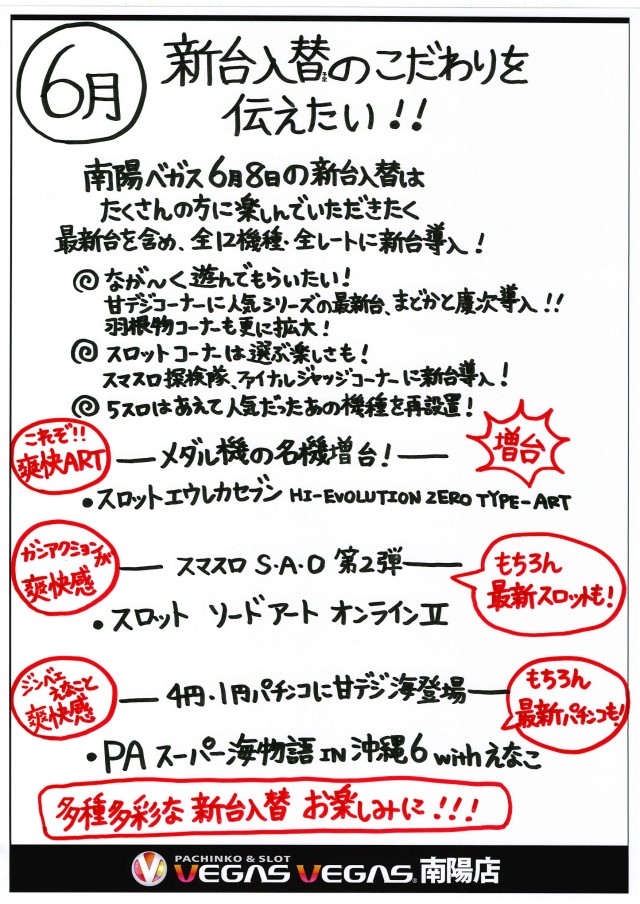 6月
新台入替のこだわりを
予定
伝えたい!!
南陽ベガス6月8日の新台入替は
たくさんの方に楽しんでいただきたく
最新台を含め、全12機種・全レートに新台導入!
なが〜く遊んでもらいたい!
甘デジコーナーに人気シリーズの最新台、まどかと慶次導入!!
羽根物コーナーも更に拡大!
スロットコーナーは選ぶ楽しさも!
スマスロ探検隊、ファイナルジャッジコーナーに新台導入!
5スロはあえて人気だったあの機種を再設置!
これぞ!!
爽快ART
メダル機の名機増台!
増台
・スロットエウレカセブン HI-EVOLUTION ZERO TYPE-ART
ガンアクションが
爽快感
スマスロ S・A・O 第2弾
もちろん
最新スロットも!
・スロット ソードアート オンラインⅡ
ジンベエ
えなこと
爽快感
4円・1円パチンコに甘デジ海登場
もちろん
最新パチンコも!
・PA スーパー海物語 IN 沖縄6 withえなこ
多種多彩な新台入替 お楽しみに!!!
PACHINKO & SLOT
VEGAS VEGAS® 南陽店